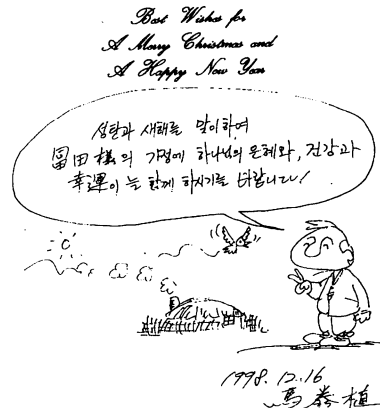 Best Wishes for
A Merry Christmas and
A Happy New Year
성탄과 새해를 맞이하여
冨田樣의 가정에 하나님의 은혜와, 건강과
幸運이 늘 함께 하시기를 바랍니다!
1998. 12. 16
馬 拳 植